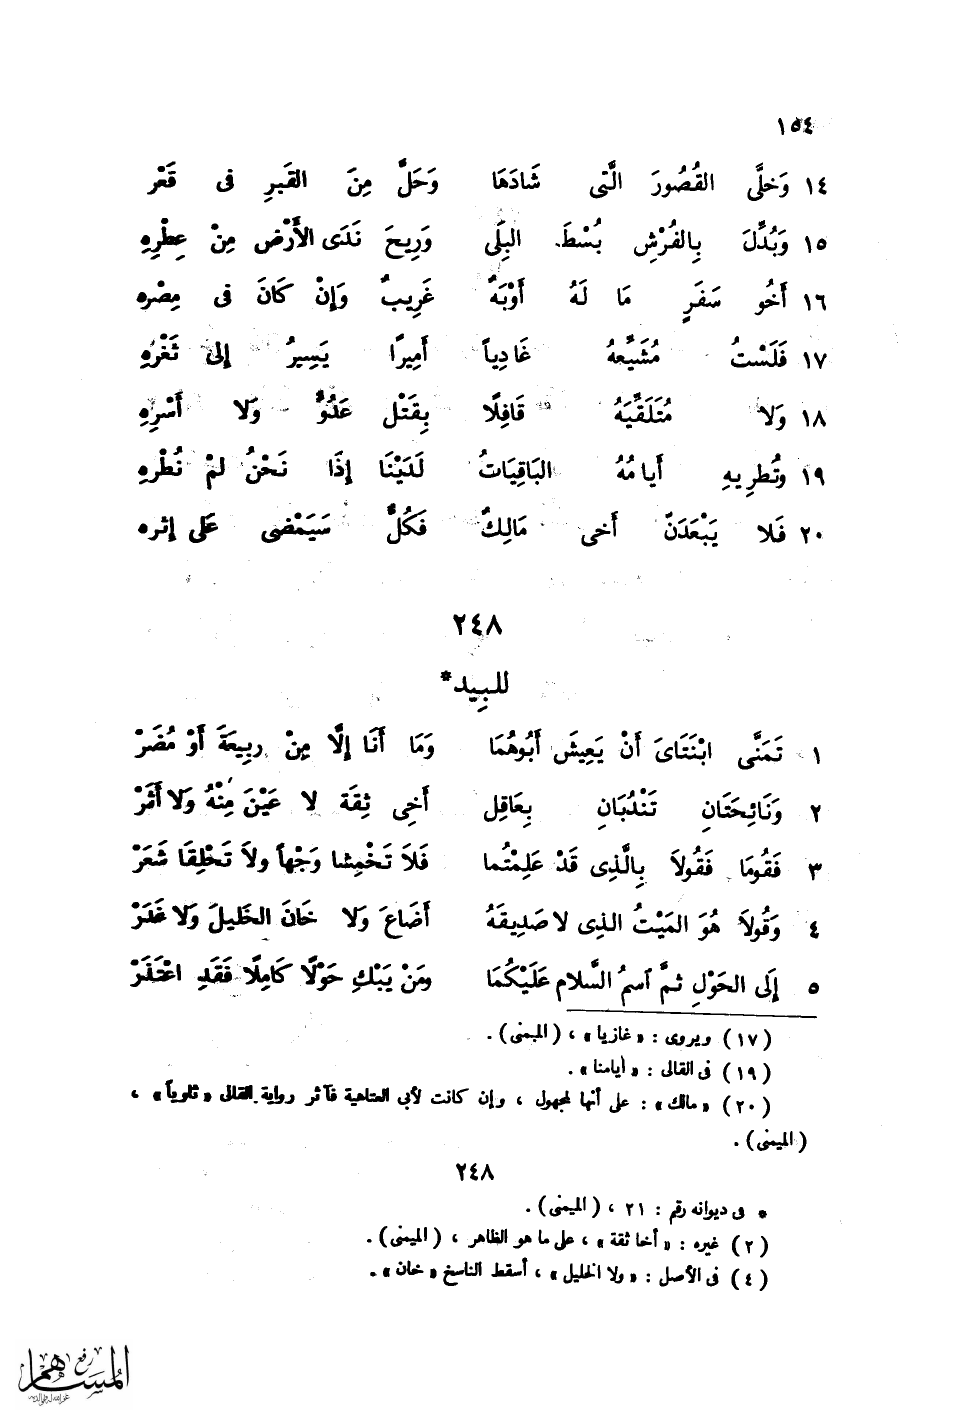 ١٥٤
١٤ وَخلَّى القُصُورَ الَّتِى شَادَهَا وَحَلَّ مِنَ القَبرِ فى قَعْرِ
١٥ وَبُدِّلَ بِالفُرْشِ بُسْطَ البِلَى وَرِيحَ نَدَى الأَرْضِ مِنْ عِطْرِهِ
١٦ أَخُو سَفَرٍ مَا لَهُ أَوْبَهٌ غَرِيبٌ وَإنْ كَانَ فى مِصْره
١٧ فَلَسْتُ مُشَيِّعهُ غَادِياً أَمِيرًا يَسِيرُ إلىَ ثَغْرِهِ
١٨ وَلا مُتَلَقِّيَهُ قَافِلًا بِقَتْل عَدُوٍّ وَلا أَسْرِهِ
١٩ وتُطرِيهِ أَيامُهُ البَاقِيَاتُ لَدَيْنَا إذَا نَحْنُ لمْ نُطْرِهِ
٢٠ فَلا يَبْعَدَنْ أَخى مَالِكٌ فَكُلٌّ سَيَمْضى عَلى إثره
٢٤٨
للبِيد*
١ تَمَنَّى ابْنَتَاىَ أَنْ يَعِيشَ أَبُوهُمَا وَمَا أَنَا إلَّا مِنْ رَبِيعَةَ أَوْ مُضَرْ
٢ وَنَائِحَتَانِ تَنْدُبَانِ بِعَاقِل أَخِى ثِقَة لا عَيْنَ مِنْهُ وَلا أَثَرْ
٣ فَقُومَا فَقُولاَ بِالَّذِى قَدْ عَلِمْتُما فَلاَ تَخْمِشا وَجْهاً ولاَ تَحْلِقَا شَعَرْ
٤ وَقُولاَ هُوَ المَيْتُ الذِى لا صَدِيقَهُ أَضَاعَ وَلا خَانَ الخَلِيلَ وَلا غَدَرْ
٥ إلَى الحَوْلِ ثمَّ اَسمُ السَّلام عَلَيْكُمَا ومَنْ يَبْكِ حَوْلًا كَامِلًا فَقَدِ اعْتَذَرْ
(١٧) ويروى : « غازيا » ، (الميمنى) .
(١٩) فى القالى : « أيامنا » .
(٢٠) « مالك » : على أنها لمجهول ، وإن كانت لأبى العتاهية فآثر رواية القالى « ثاوياً » ،
(الميمنى) .
٢٤٨
* فى ديوانه رقم : ٢١ ، (الميمنى) .
(٢) غيره : « أخا ثقة » ، على ما هو الظاهر ، (الميمنى) .
(٤) فى الأصل : « ولا الخليل » ، أسقط الناسخ « خان » .
رفع
المساهم